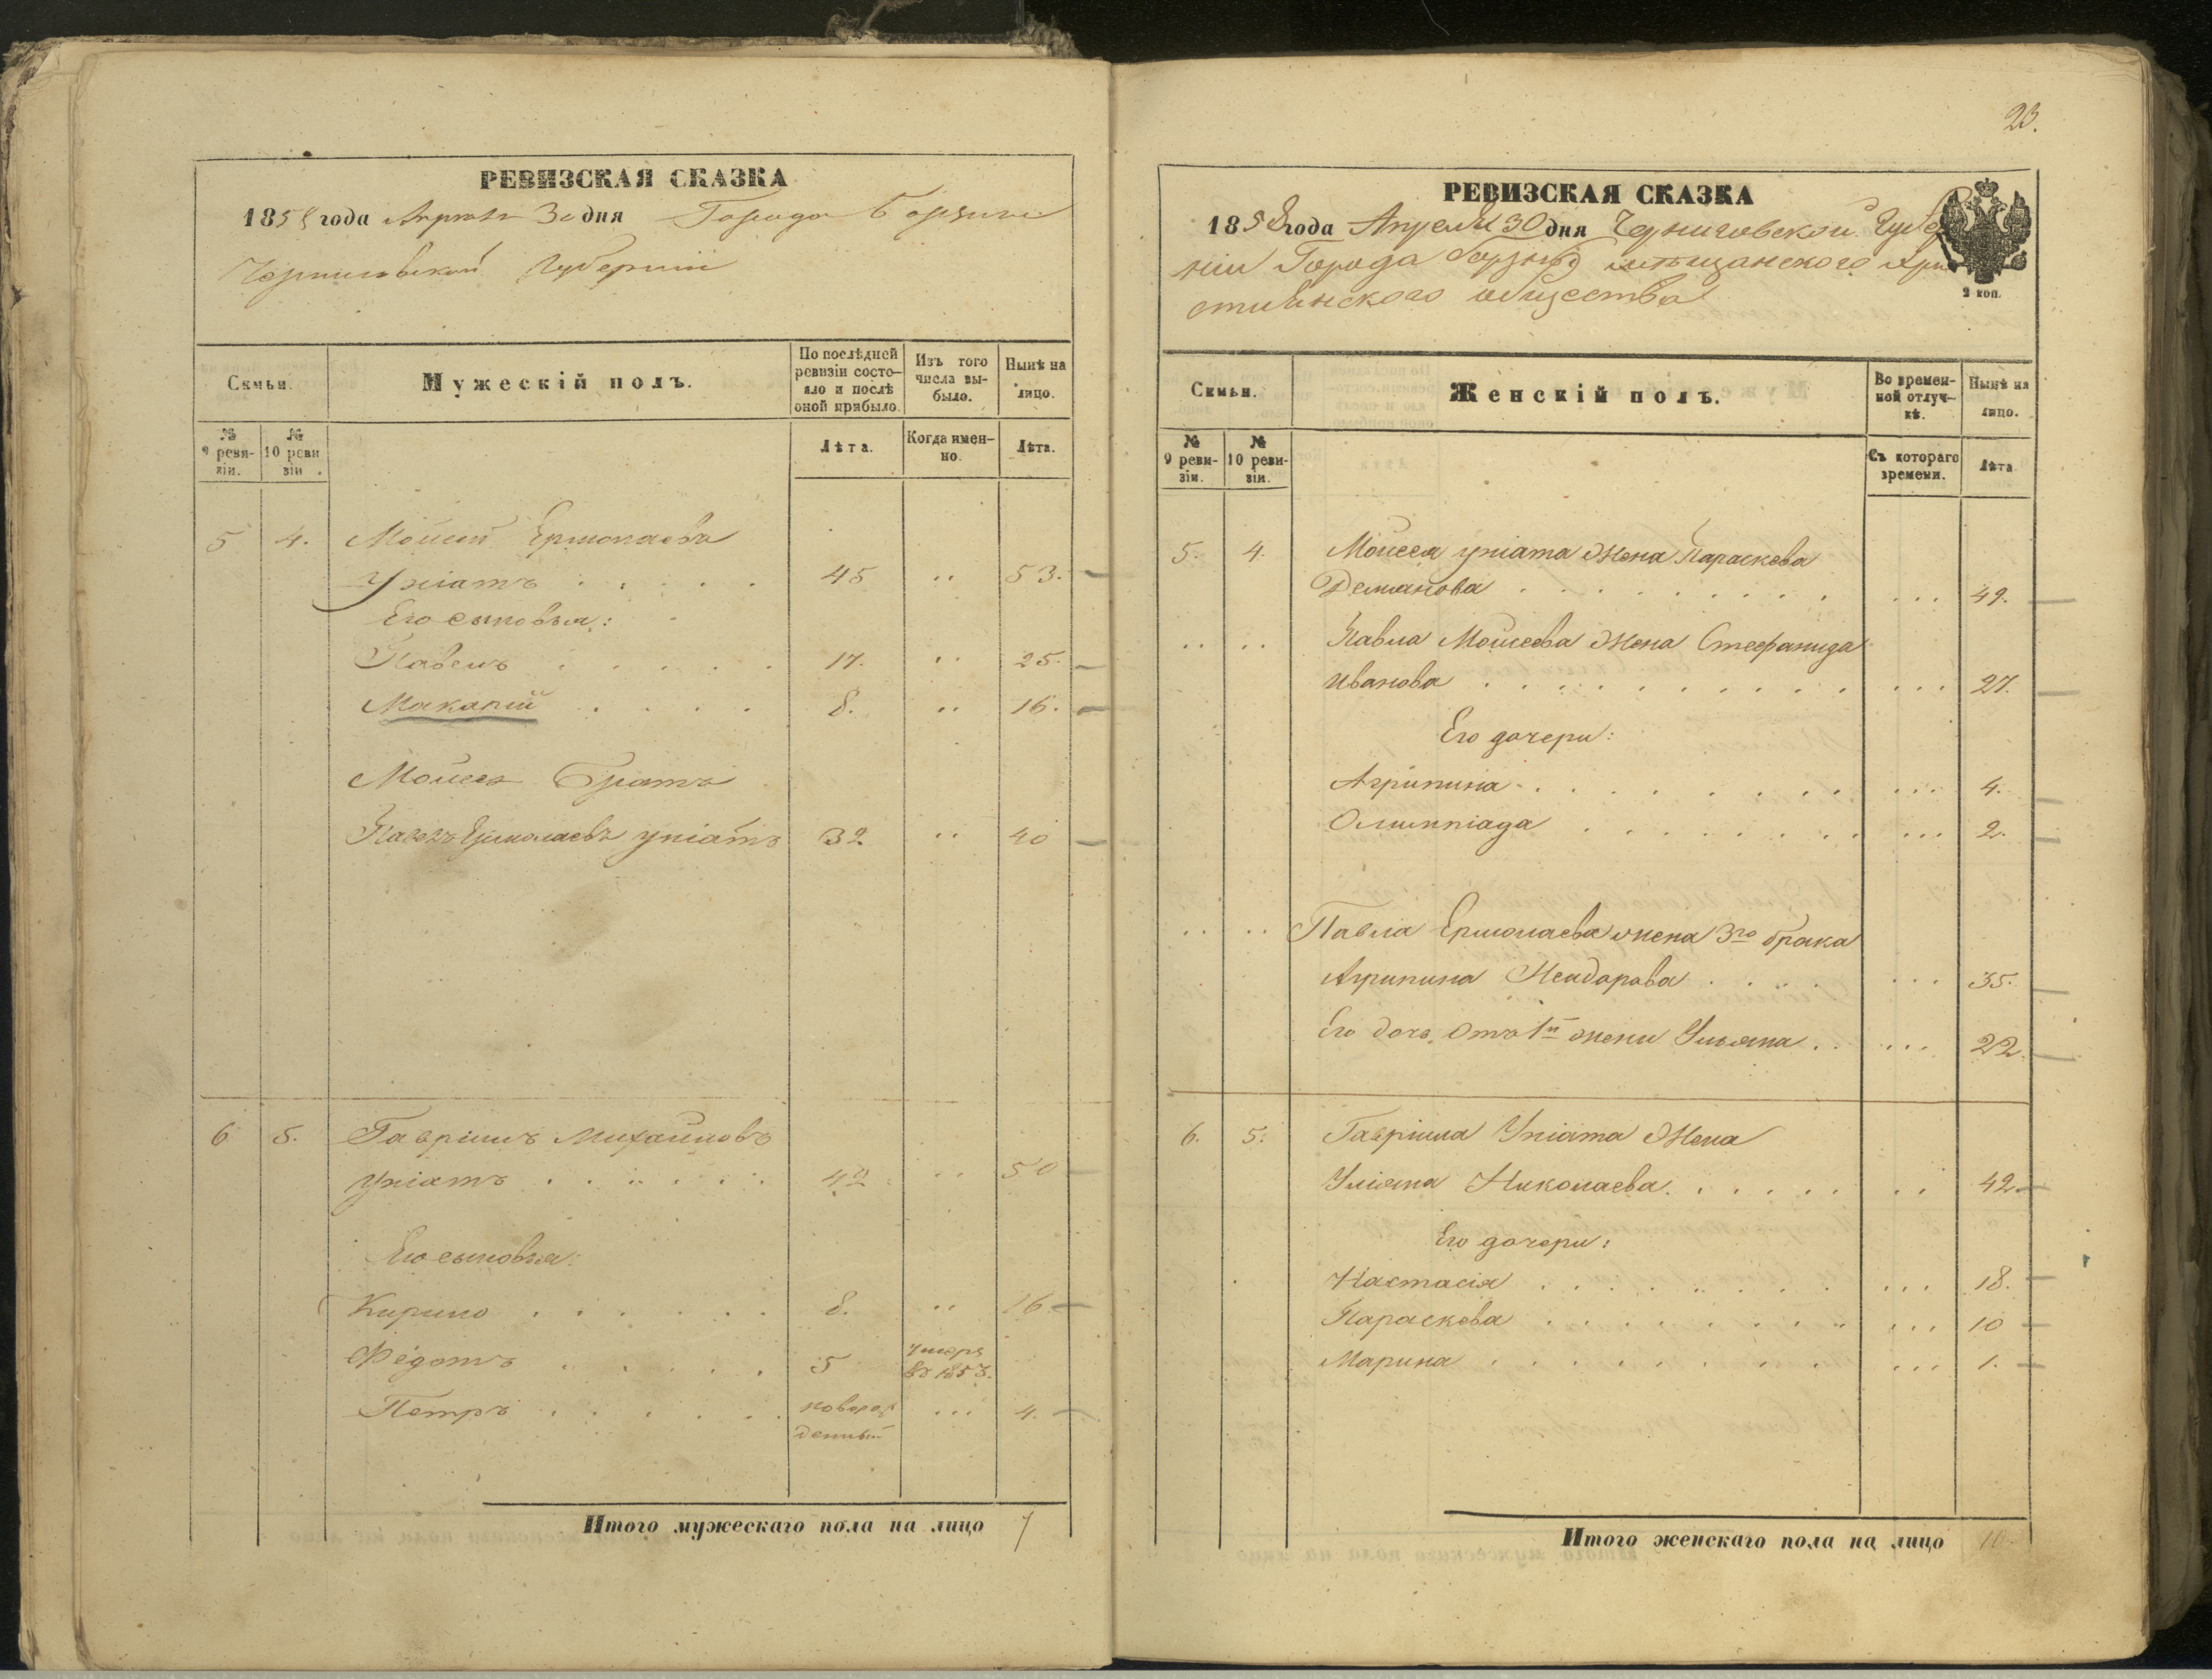 РЕВИЗСКАЯ СКАЗКА
1858 года Апреля 30 дня Города Борзни
Черниговской Губерніи
Семьи.
Мужескій полъ.
По послѣдней ревизіи состояло и послѣ оной прибыло.
Изъ того числа выбыло.
Нынѣ на лицо.
№ 9 ревизіи.
№ 10 ревизіи.
Лѣта.
Когда именно.
Лѣта.
5 4. Мойсей Ермолаевъ
Уніатъ . . . . . 45 .. 53.
Его сыновья:
Павелъ . . . . . 17. .. 25.
Макарій . . . . 8. .. 16.
Мойсея Братъ
Павелъ Ермолаевъ уніатъ 32 .. 40
6 5. Гавріилъ Михайловъ
уніатъ . . . . . . 42 .. 50
Его сыновья:
Кирило . . . . . . 8. .. 16.
Федотъ . . . . . 5 умеръ въ 1853.
Петръ . . . . . . новорожденный ... 4.
Итого мужескаго пола на лицо 7
23.
РЕВИЗСКАЯ СКАЗКА
1858 года Апреля 30 дня Черниговской Губер
ніи Города Борзны мѣщанского Хри
стиянского общества
2 коп.
Семьи.
Женскій полъ.
Во временной отлучкѣ.
Нынѣ на лицо.
№ 9 ревизіи.
№ 10 ревизіи.
Съ котораго времени.
Лѣта.
5. 4. Моисея уніата Жена Параскева
Демянова . . . . . . . . . ... 49.
.. .. Павла Моисеева Жена Стефанида
Иванова . . . . . . . . . . ... 27.
Его дочери:
Агрипина . . . . . . . . . ... 4.
Олимпіада . . . . . . . . ... 2.
.. .. Павла Ермолаева жена 3го брака
Агрипина . . . . ... 35.
Его дочь отъ 1й жени Ульяна . . ... 22.
6. 5. Гавріила Уніата Жена
Ульяна Николаева . . . . . . .. 42.
Его дочери:
Настасія . . . . . . . . ... 18.
Параскева . . . . . . . . ... 10
Марина . . . . . . . . . ... 1.
Итого женскаго пола на лицо 10.